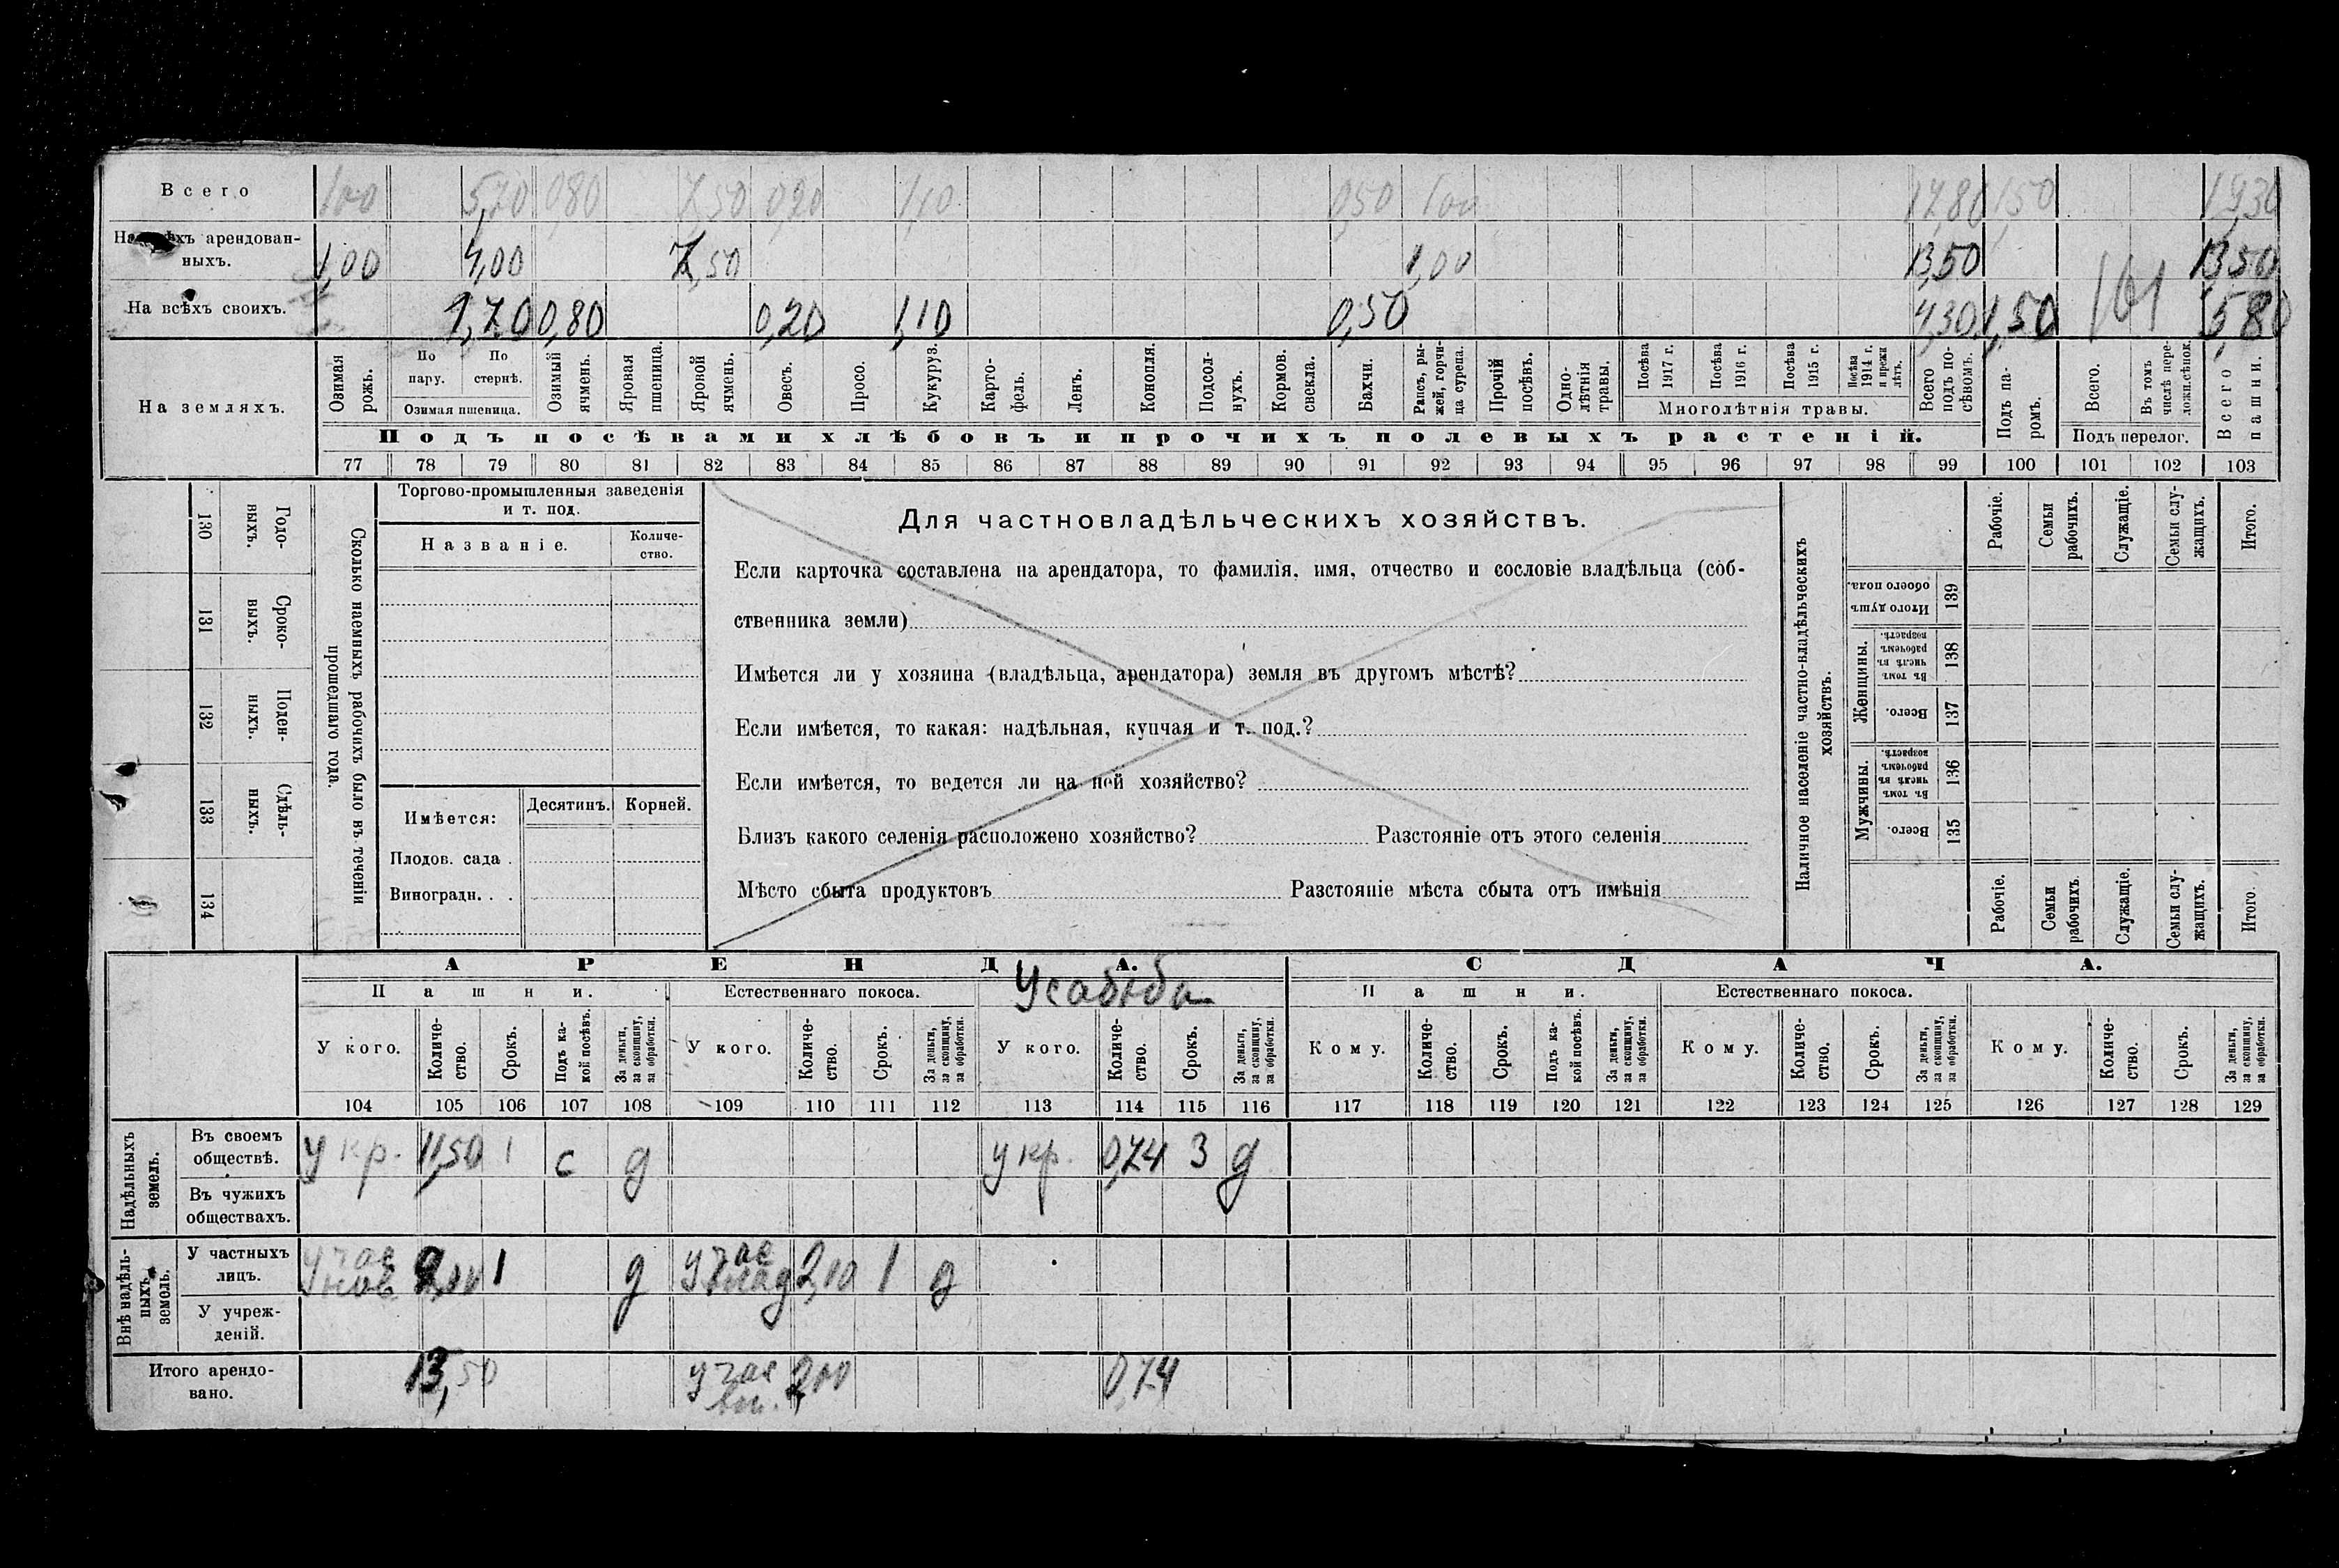 Всего 1,00 5,70 0,80 7,50 0,20 1,10 0,50 1,00 17,80 1,50 19,30
На всѣхъ арендован-
ныхъ. 1,00 4,00 7,50 1,00 13,50 13,50
На всѣхъ своихъ. 1,70 0,80 0,20 1,10 0,50 4,30 1,50 101 5,80
На земляхъ.
Озимая рожь.
По пару.
По стернѣ.
Озимая пшеница.
Озимый ячмень.
Яровая пшеница.
Яровой ячмень.
Овесъ.
Просо.
Кукуруз.
Карто-
фель.
Ленъ.
Конопля.
Подсол-
нухъ.
Кормов.
свекла.
Бахчи.
Рапсъ, ры-
жей, горчи-
ца сурепа.
Прочій посѣвъ.
Одно-
лѣтнія
травы.
Посѣва 1917 г.
Посѣва 1916 г.
Посѣва 1915 г.
Посѣва 1914 г. и прежн лѣтъ.
Многолѣтнія травы.
Всего подъ по-
сѣвомъ.
Подъ па-
ромъ.
Всего.
Въ томъ числѣ пере-
ложн.сѣнок.
Подъ перелог.
Всего пашни.
Подъ посѣвами хлѣбовъ и прочихъ полевыхъ растеній.
77 78 79 80 81 82 83 84 85 86 87 88 89 90 91 92 93 94 95 96 97 98 99 100 101 102 103
Сколько наемныхъ рабочихъ было въ теченіи
прошедшаго года.
Годо-
выхъ.
130
Сроко-
выхъ.
131
Поден-
ныхъ.
132
Сдѣль-
ныхъ.
133
134
Торгово-промышленныя заведенія
и т. под.
Названіе.
Количе-
ство.
Имѣется:
Десятинъ.
Корней.
Плодов. сада .
Виноградн. . .
Для частновладѣльческихъ хозяйствъ.
Если карточка составлена на арендатора, то фамилія, имя, отчество и сословіе владѣльца (соб-
ственника земли)
Имѣется ли у хозяина (владѣльца, арендатора) земля въ другомъ мѣстѣ?
Если имѣется, то какая: надѣльная, купчая и т. под.?
Если имѣется, то ведется ли на ней хозяйство?
Близъ какого селенія расположено хозяйство? Разстояніе отъ этого селенія
Мѣсто сбыта продуктовъ Разстояніе мѣста сбыта отъ имѣнія
Наличное населеніе частно-владѣльческихъ
хозяйствъ.
Рабочіе.
Семьи рабочихъ.
Служащіе.
Семьи слу-
жащихъ.
Итого.
Итого душъ обоего пола.
139
Женщины.
Въ томъ числѣ въ рабочемъ возрастѣ.
138
Всего.
137
Мужчины.
Въ томъ числѣ въ рабочемъ возрастѣ.
136
Всего.
135
Рабочіе.
Семьи рабочихъ
Служащіе.
Семьи слу-
жащихъ.
Итого.
АРЕНДА.
СДАЧА.
Пашни.
Естественнаго покоса.
Усадьба
Пашни.
Естественнаго покоса.
У кого.
Количе-
ство.
Срокъ.
Подъ ка-
кой посѣвъ.
За деньги,
за скопщину,
за обработки.
У кого.
Количе-
ство.
Срокъ.
За деньги,
за скопщину,
за обработки.
У кого.
Количе-
ство.
Срокъ.
За деньги,
за скопщину,
за обработки.
Кому.
Количе-
ство.
Срокъ.
Подъ ка-
кой посѣвъ.
За деньги,
за скопщину,
за обработки.
Кому.
Количе-
ство.
Срокъ.
За деньги,
за скопщину,
за обработки.
Кому.
Количе-
ство.
Срокъ.
За деньги,
за скопщину,
за обработки.
104 105 106 107 108 109 110 111 112 113 114 115 116 117 118 119 120 121 122 123 124 125 126 127 128 129
Надѣльныхъ
земель.
Въ своемъ
обществѣ. У кр. 11,50 1 с д у кр. 0,74 3 д
Въ чужихъ
обществахъ.
Внѣ надѣль-
ныхъ
земель.
У частныхъ
лицъ. У час 2,00 1 д у час влад 2,00 1 д
У учреж-
деній.
Итого арендо-
вано. 13,50 у час вл. 2,00 0,74